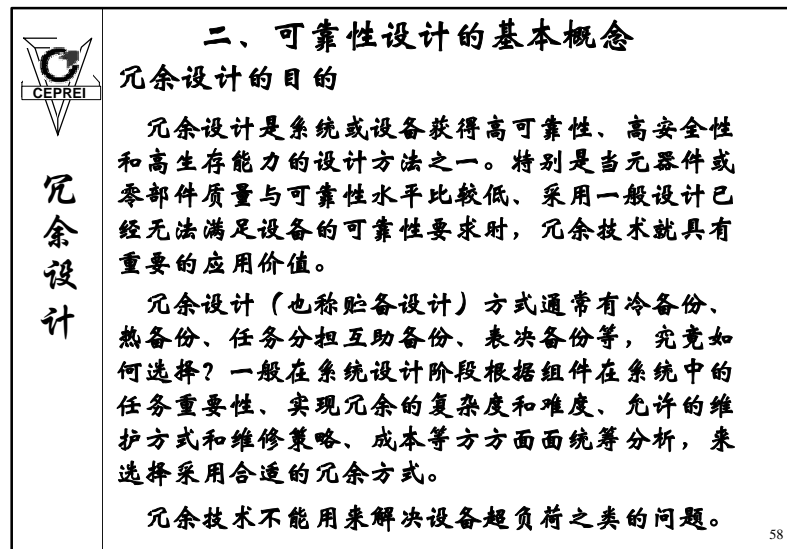 二、可靠性设计的基本概念
CEPREI
冗余设计
冗余设计的目的
冗余设计是系统或设备获得高可靠性、高安全性
和高生存能力的设计方法之一。特别是当元器件或
零部件质量与可靠性水平比较低、采用一般设计已
经无法满足设备的可靠性要求时，冗余技术就具有
重要的应用价值。
冗余设计（也称贮备设计）方式通常有冷备份、
热备份、任务分担互助备份、表决备份等，究竟如
何选择？一般在系统设计阶段根据组件在系统中的
任务重要性、实现冗余的复杂度和难度、允许的维
护方式和维修策略、成本等方方面面统筹分析，来
选择采用合适的冗余方式。
冗余技术不能用来解决设备超负荷之类的问题。
58